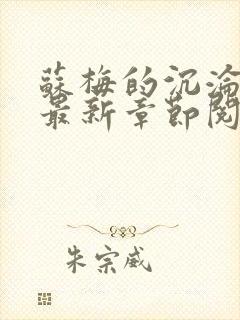 蘇梅的沉淪
最新章節閱
朱宗威